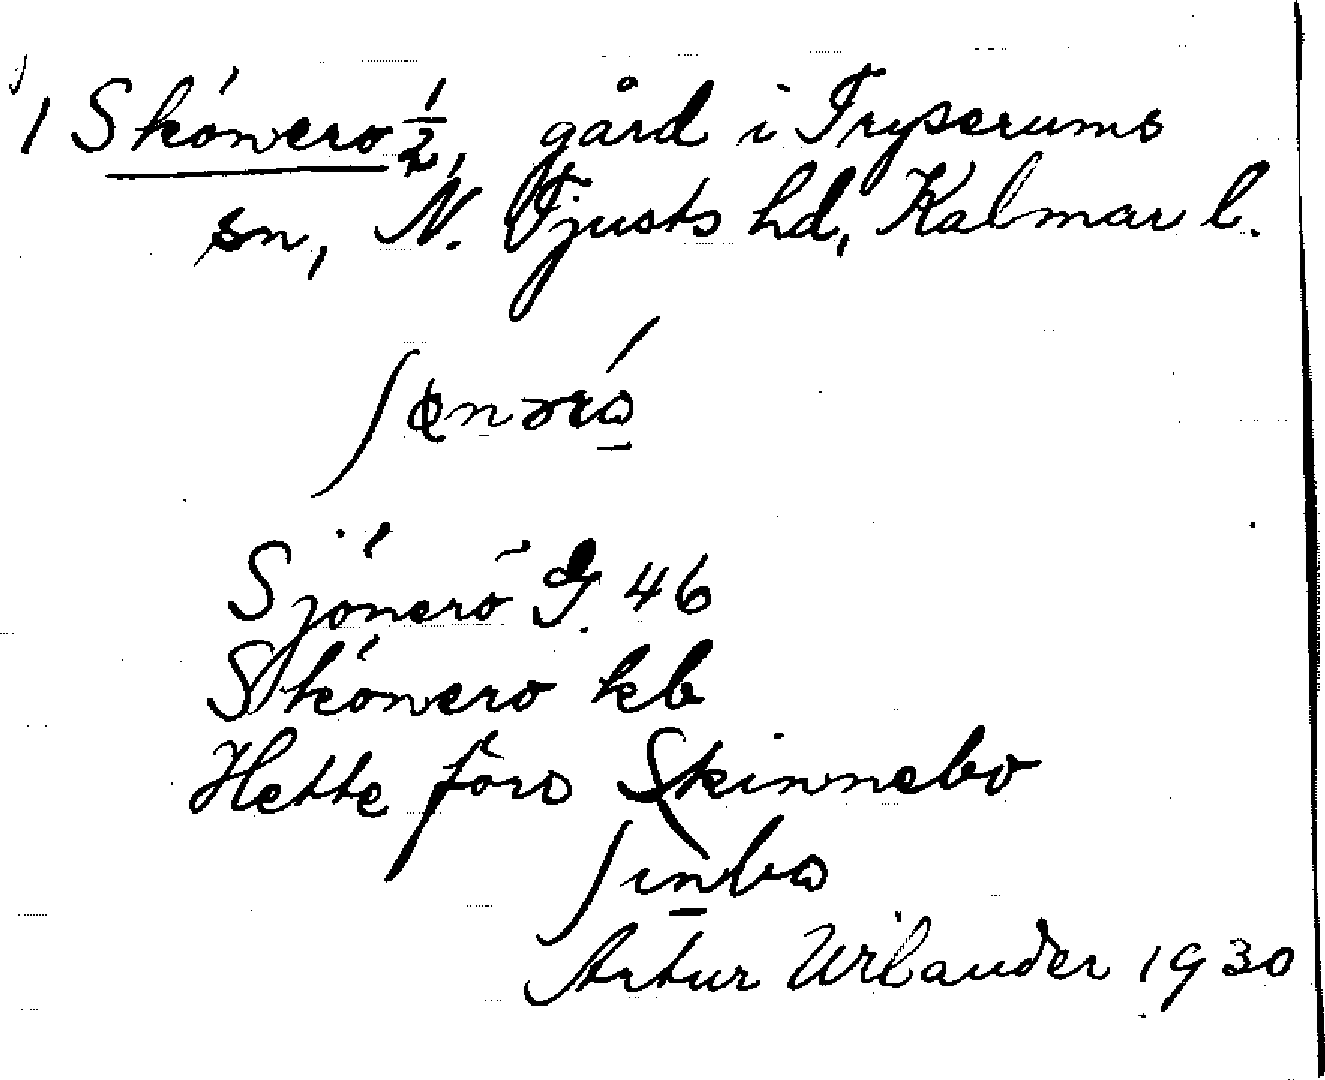 1 Skönero ½, gård i Tryserums
sn, N. Tjusts hd, Kalmar l.
Sjönerö G. 46
Skönero kb
Hette förr Skinnebo
ʃinbo
Artur Wilander 1930